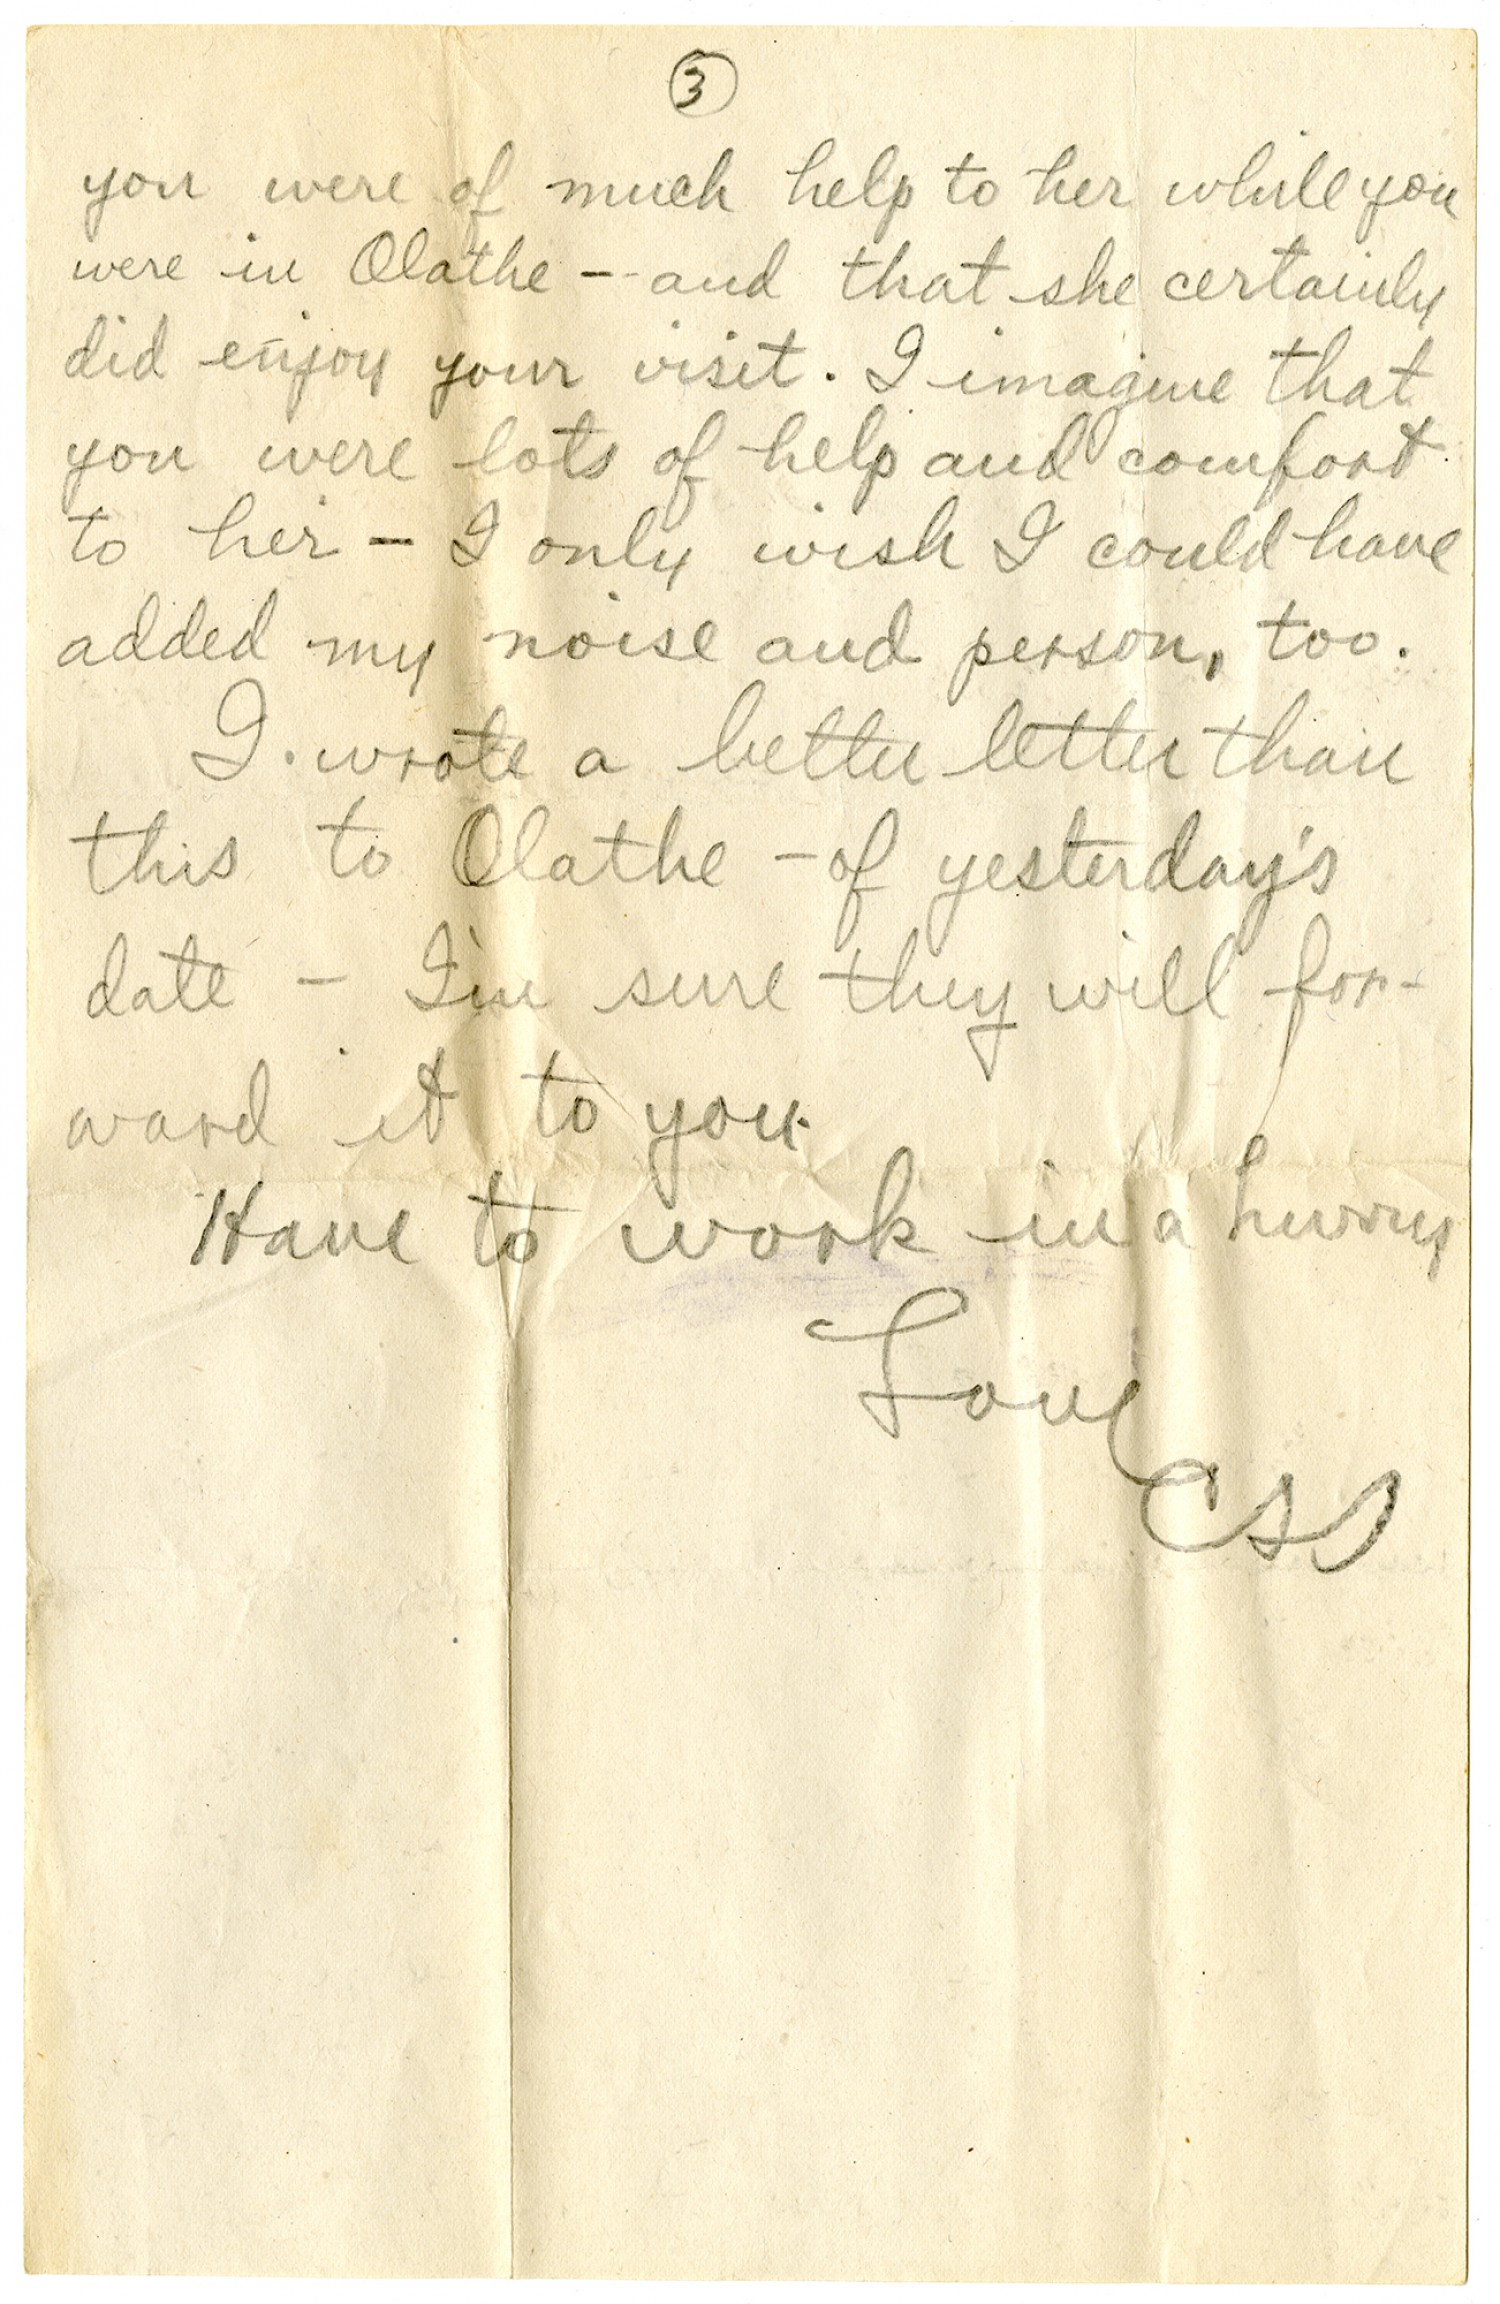 3
you were of much help to her while you
were in Olathe -- and that she certainly
did enjoy your visit. I imagine that
you were lots of help and comfort
to her - I only wish I could have
added my noise and person, too.
I wrote a better letter than
this to Olathe - of yesterday's
date - I'm sure they will for-
ward it to you.
Have to work in a hurry
Love
CSS